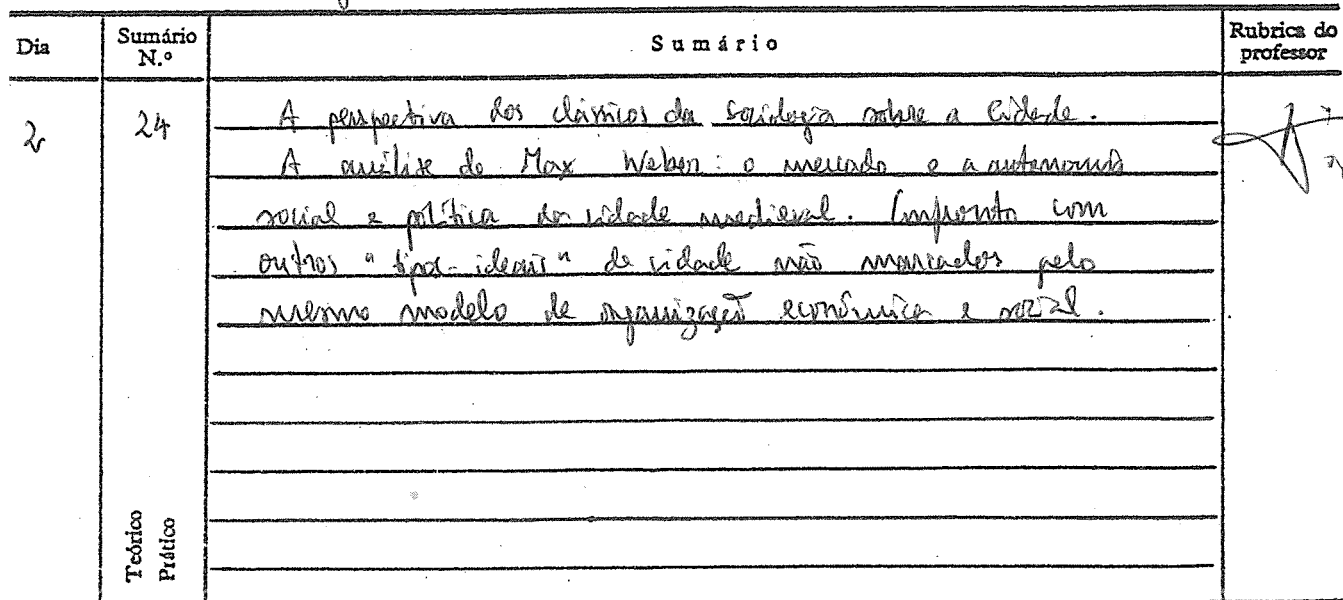 Dia
Sumário N.º
Sumário
Rubrica do professor
2
24
A perspectiva dos clássicos da sociologia sobre a Cidade.
A análise de Max Weber: o mercado e a autonomia
social e política da cidade medieval. Confronto com
outros "tipos-ideais" de cidade não marcados pelo
mesmo modelo de organização económica e social.
Teórico
Prático